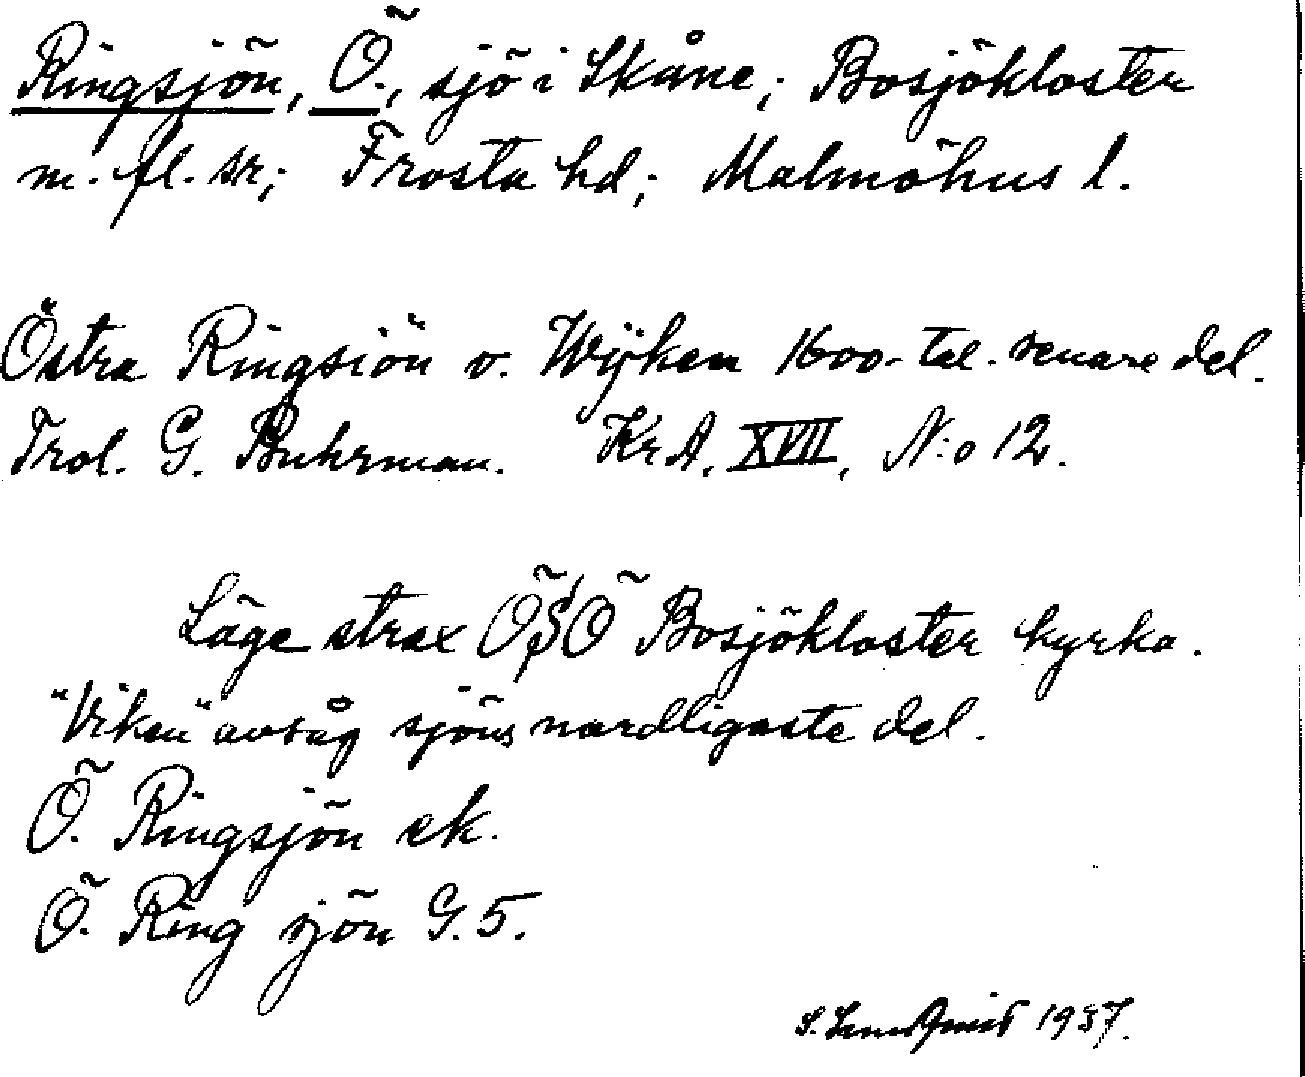 Ringsjön, Ö., sjö i Skåne; Bosjökloster
m. fl. sr; Frosta hd; Malmöhus l.
Östra Ringsiön v. Wijken 1600-tal. senare del.
Trol. G. Buhrman. KrA, XVII, N:o 12.
Läge strax ÖSÖ Bosjökloster kyrka.
"Viken" avsåg sjöns nordligaste del.
Ö. Ringsjön ek.
Ö. Ring sjön G. 5.
S. 1937.